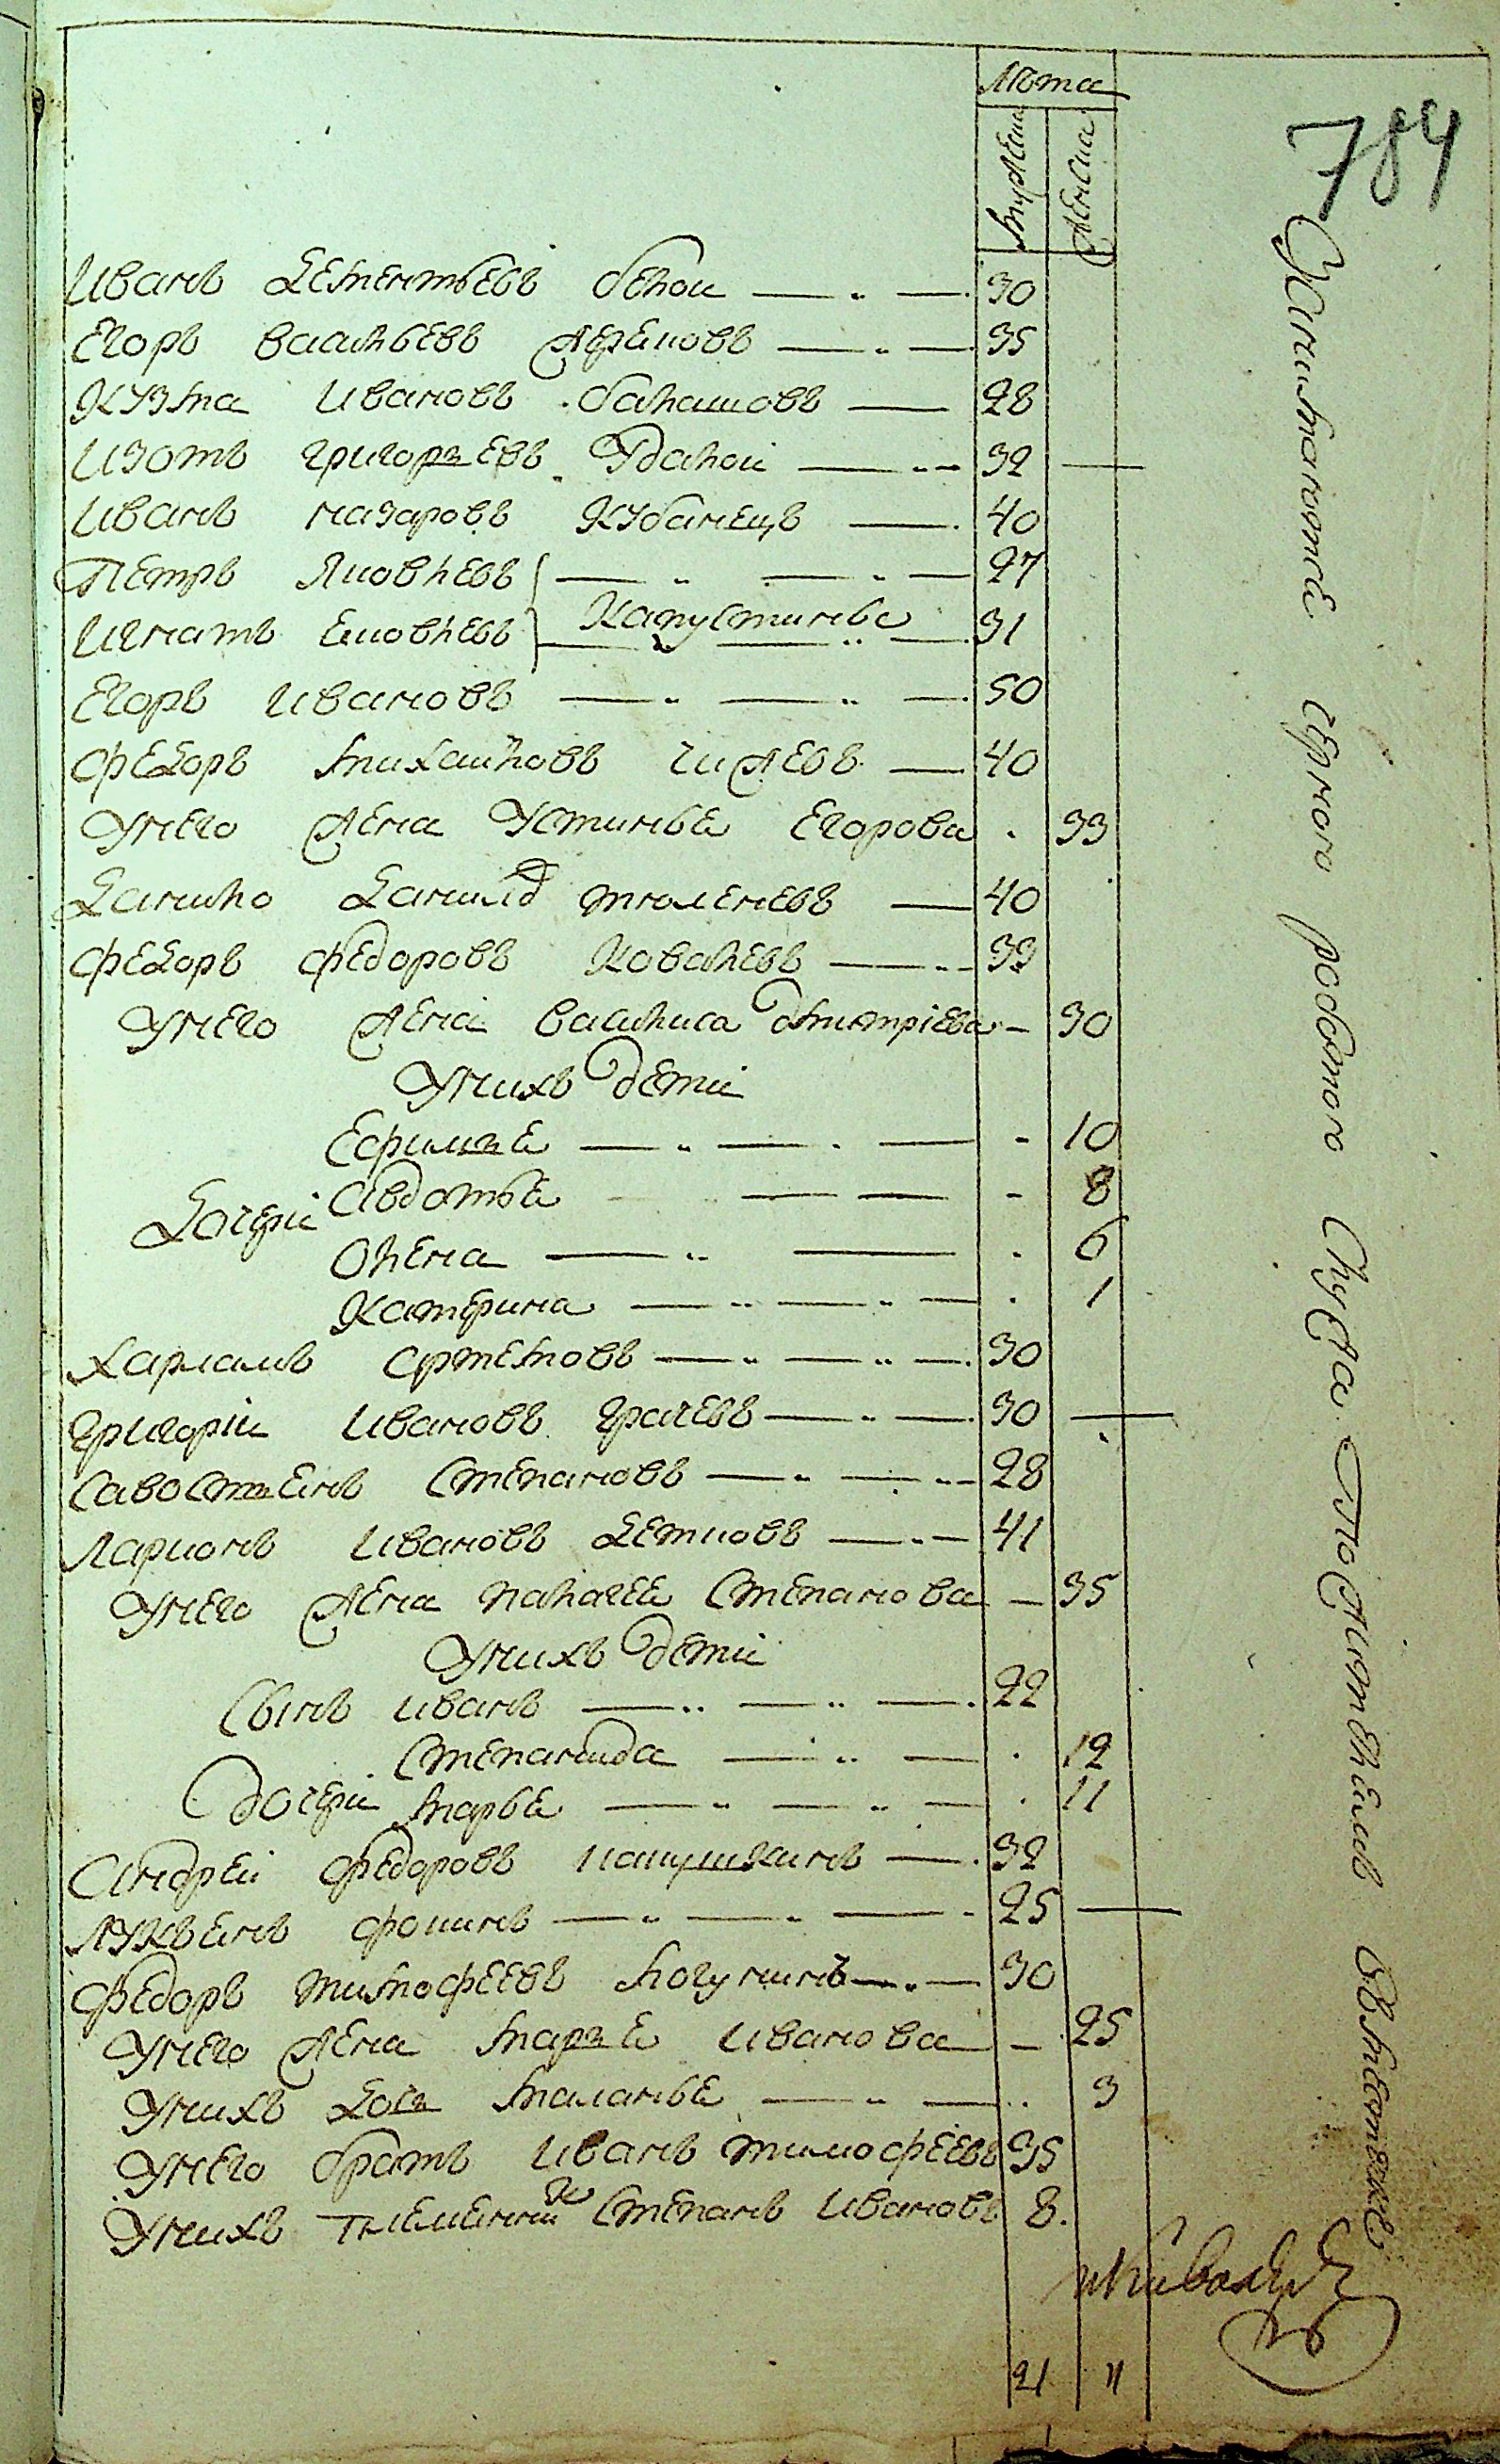 784
Лѣта
мужска
женска
Иванъ Дементьевъ белои 30
Егоръ васильевъ жерновъ 35
Кузма Ивановъ балашовъ 28
Изотъ григорьевъ Удалои 32
Иванъ назаровъ Кубанецъ 40
Петръ Яковлевъ 27
Игнатъ Яковлевъ Капустины 31
Егоръ Ивановъ 50
Федоръ михаиловъ чижевъ 40
Унего жена Устинья Егорова 33
Данило Данилов тюленевъ 40
Федоръ федоровъ Ковалевъ 33
Унего жена василиса дмитріева 30
Унихъ дети
Ефимья 10
Авдотья 8
Дочери
Олена 6
Катерина 1
Харламъ Артемовъ 30
Григоріи Ивановъ грачевъ 30
Савостьянъ Степановъ 28
Ларионъ Ивановъ Детковъ 41
Унего жена палагея Степанова 35
Унихъ дети
Сынъ иванъ 22
Степанида 12
Дочери марья 11
Андреи федоровъ 32
Лукьянъ фокинъ 25
Федоръ тимофеевъ 30
Унего жена марья иванова 25
Унихъ дочь маланья 3
Унего братъ Иванъ тимофеевъ 35
Унихъ племянник Степанъ Ивановъ 8.
21 11